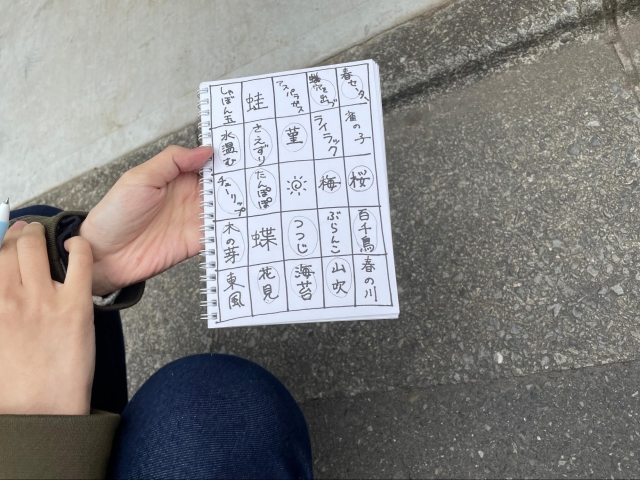 しゃぼん玉
蛙
アスパラガス
穴を出づ
春セーター
水温む
さえずり
菫
ライラック
雀の子
チューリップ
たんぽぽ
梅
桜
木の芽
蝶
つつじ
ぶらんこ
百千鳥
東風
花見
海苔
山吹
春の川